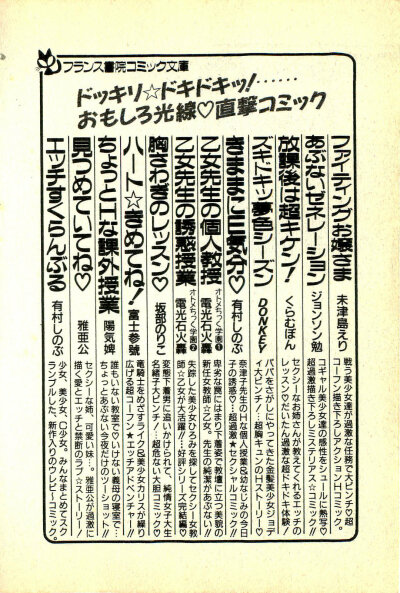 フランス書院コミック文庫
ドッキリ☆ドキドキッ!……
おもしろ光線♡直撃コミック
ファイティングお嬢さま 末津島えり
戦う美少女達が過激な任務で大ピンチ♡超
コーフン描き下ろしアクションHコミック。
あぶないゼネレーション ジョンソン勉
コギャル美少女達の感性をシュールに熱写♡
超過激描き下ろしミステリアス☆コミック!!
放課後は超キケン! くらむぼん
セクシーなお姉さんが教えてくれるエッチの
レッスン♡だいたん過激な超ドキドキ体験!
ズキドキッ夢色シーズン DONKEY
パパをさがしにやってきた金髪美少女ジョデ
ィ大ピンチ!…超胸キュンのHストーリー♡
きままに三気分♡ 有村しのぶ
奈津子先生のHな個人授業&幼なじみの今日
子の誘惑♡…超過激★セクシャルコミック!!
乙女先生の個人教授 オトメちっく学園❶ 電光石火轟
卑劣な罠にはまり下着姿で教壇に立つ美貌の
新任女教師☆乙女。先生の純潔があぶない!!
乙女先生の誘惑授業 オトメちっく学園❷ 電光石火轟
失踪した美少女ひろみを探してセクシー女教
師☆乙女が大活躍!!…好評シリーズ完結編♡
胸さわぎのレッスン♡ 坂部のりこ
変態下着男に追いかけられて、純情女子大生
名綺子大ピンチ!…超危なく大胆コミック♡
ハート☆きめてね! 富士参號
竜騎士をめざすライク&美少女カリスが繰り
広げる超コーフン★エッチアドベンチャー!!
ちょっとHな課外授業 陽気婢
誰もいない教室で♡いけない義母の寝室で…
ちょっとあぶない今夜だけのツーショット!!
見つめていてね♡ 雅亜公
セクシーな姉、可愛い妹…。雅亜公が過激に
描く愛とエッチと禁断のラブ☆ストーリー!
エッチすくらんぶる 有村しのぶ
少女、美女、C少女。みんなまとめてスク
ランブルした、新作入りのウレピ〜コミック。